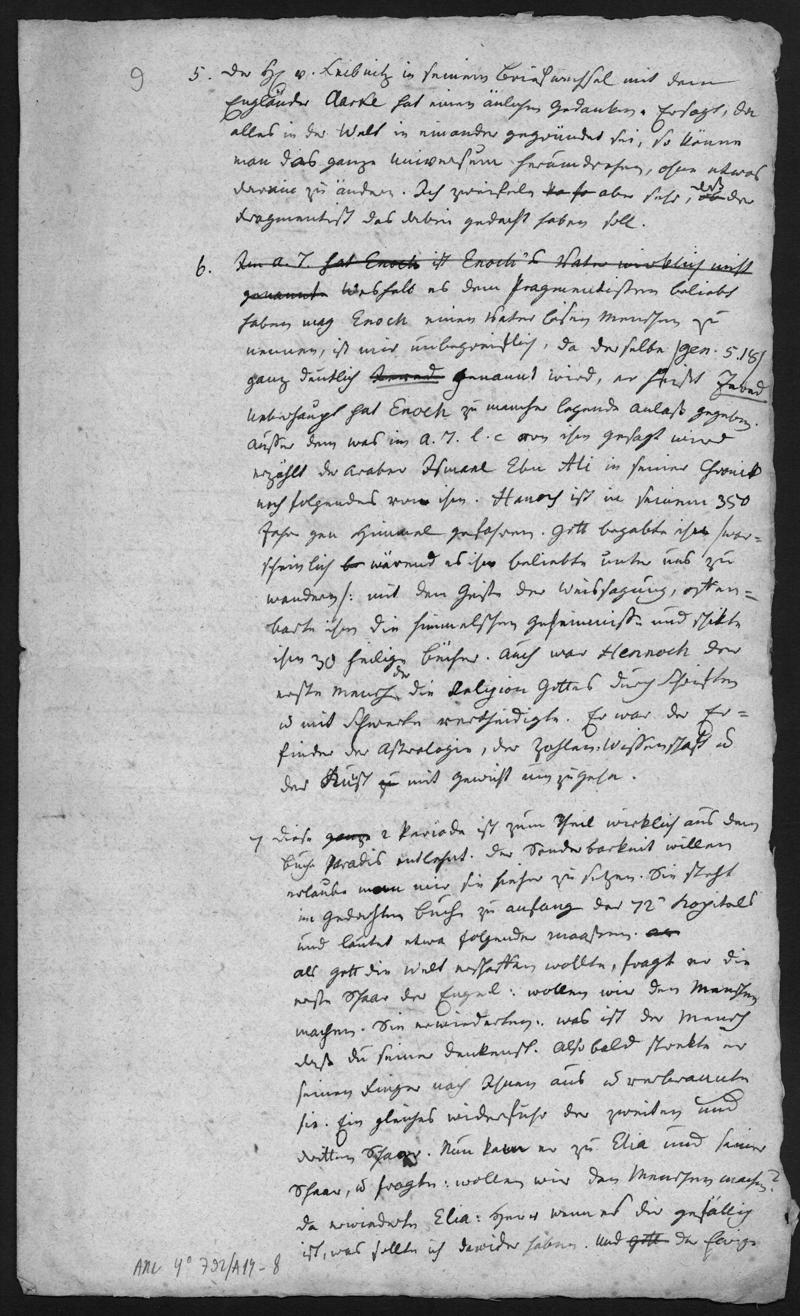 9
5. Der H. v. Leibnitz in seinem Briefwechsel mit dem
Engländer Clarke hat einen änlichen Gedanken. Er sagt, da
alles in der Welt in einander gegründet sei, so könne
man das ganze Universum herumdrehen, ohne etwas
darin zu ändern. Ich zweifele aber sehr, daß der
Fragmentist das dabei gedacht haben soll.
6. Im A. T. hat Enoch ist Enoch's Vater wirklich nicht
genannt. Weshalb es dem Fragmentisten beliebt
haben mag Enoch einen Vater losen Menschen zu
nennen, ist mir unbegreiflich, da derselbe /gen. 5.18/
ganz deutlich Jared genannt wird, er heist Jared
Ueberhaupt hat Enoch zu mancher legende anlaß gegeben.
Ausser dem was im A. T. l. c von ihm gesagt wird
erzählt der Araber Ismael Ebn Ali in seiner Chronik
noch folgendes von ihm. Hanoch ist in seinem 350
Jahre gen Himmel gefahren. Gott begabte ihn /war=
scheinlich wärend es ihm beliebte unter uns zu
wandern/: mit dem Geiste der Weissagung, offen=
barte ihm die himmelschen geheimnisse und schikte
ihm 30 heilige bücher. Auch war Hennoch der
erste Mensch der die Religion Gottes durch Schriften
u mit Schwerte vertheidigte. Er war der Er=
finder der Astrologie, der Zahlen-Wissenschaft u
der Kunst zu mit Gewicht umzugehn.
7 Diese ganze 2 Periode ist zum Theil wirklich aus dem
buche Paradis entlehnt. Der Sonderbarkeit willen
erlaube man mir sie hieher zu setzen. Sie steht
im gedachten Buche zu anfang des 72n Kapitels
und lautet etwa folgender maassen.
als gott die Welt erschaffen wollte, fragt er die
erste Schaar der Engel: wollen wir den Menschen
machen. Sie erwiederten: was ist der Mensch
daß du seiner denkenst. Alsobald strekte er
seinen Finger nach Ihnen aus u verbrannte
sie. Ein gleiches widerfuhr der zweiten und
dritten Schaar. Nun kam er zu Elia und seiner
Schaar, u fragte: wollen wir den Menschen machen?
da erwiederte Elia: Herr wenn es dir gefällig
ist, was sollte ich dawider haben. Und gott der Herr
ANL 4° 792/A19-8